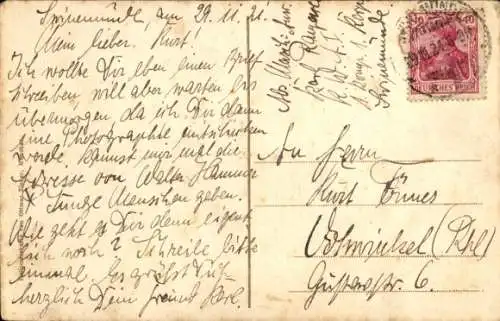 Swinemünde, am 29.11.21.
Mein lieber Kurt!
Ich wollte Dir eben einen Brief
schreiben, will aber warten bis
übermorgen, da ich Dir dann
eine Photographie mitschicken
werde, kannst mir mal die
Adresse von Walter Hammer
Junge Menschen geben.
Wie geht es Dir denn eigent
lich noch? Schreibe bitte
einmal. Es grüßt Dich
herzlich Dein Freund Karl.
Abs. Matr.
Karl
Swinemünde
40
DEUTSCHES REICH
An Herrn
Kurt
Vohwinkel (Rhl)
Gustavstr. 6.